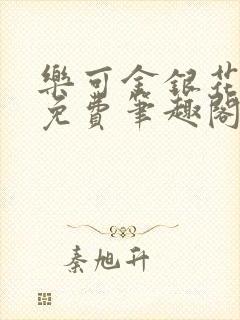 樂可金銀花
免費筆趣閣
秦旭升